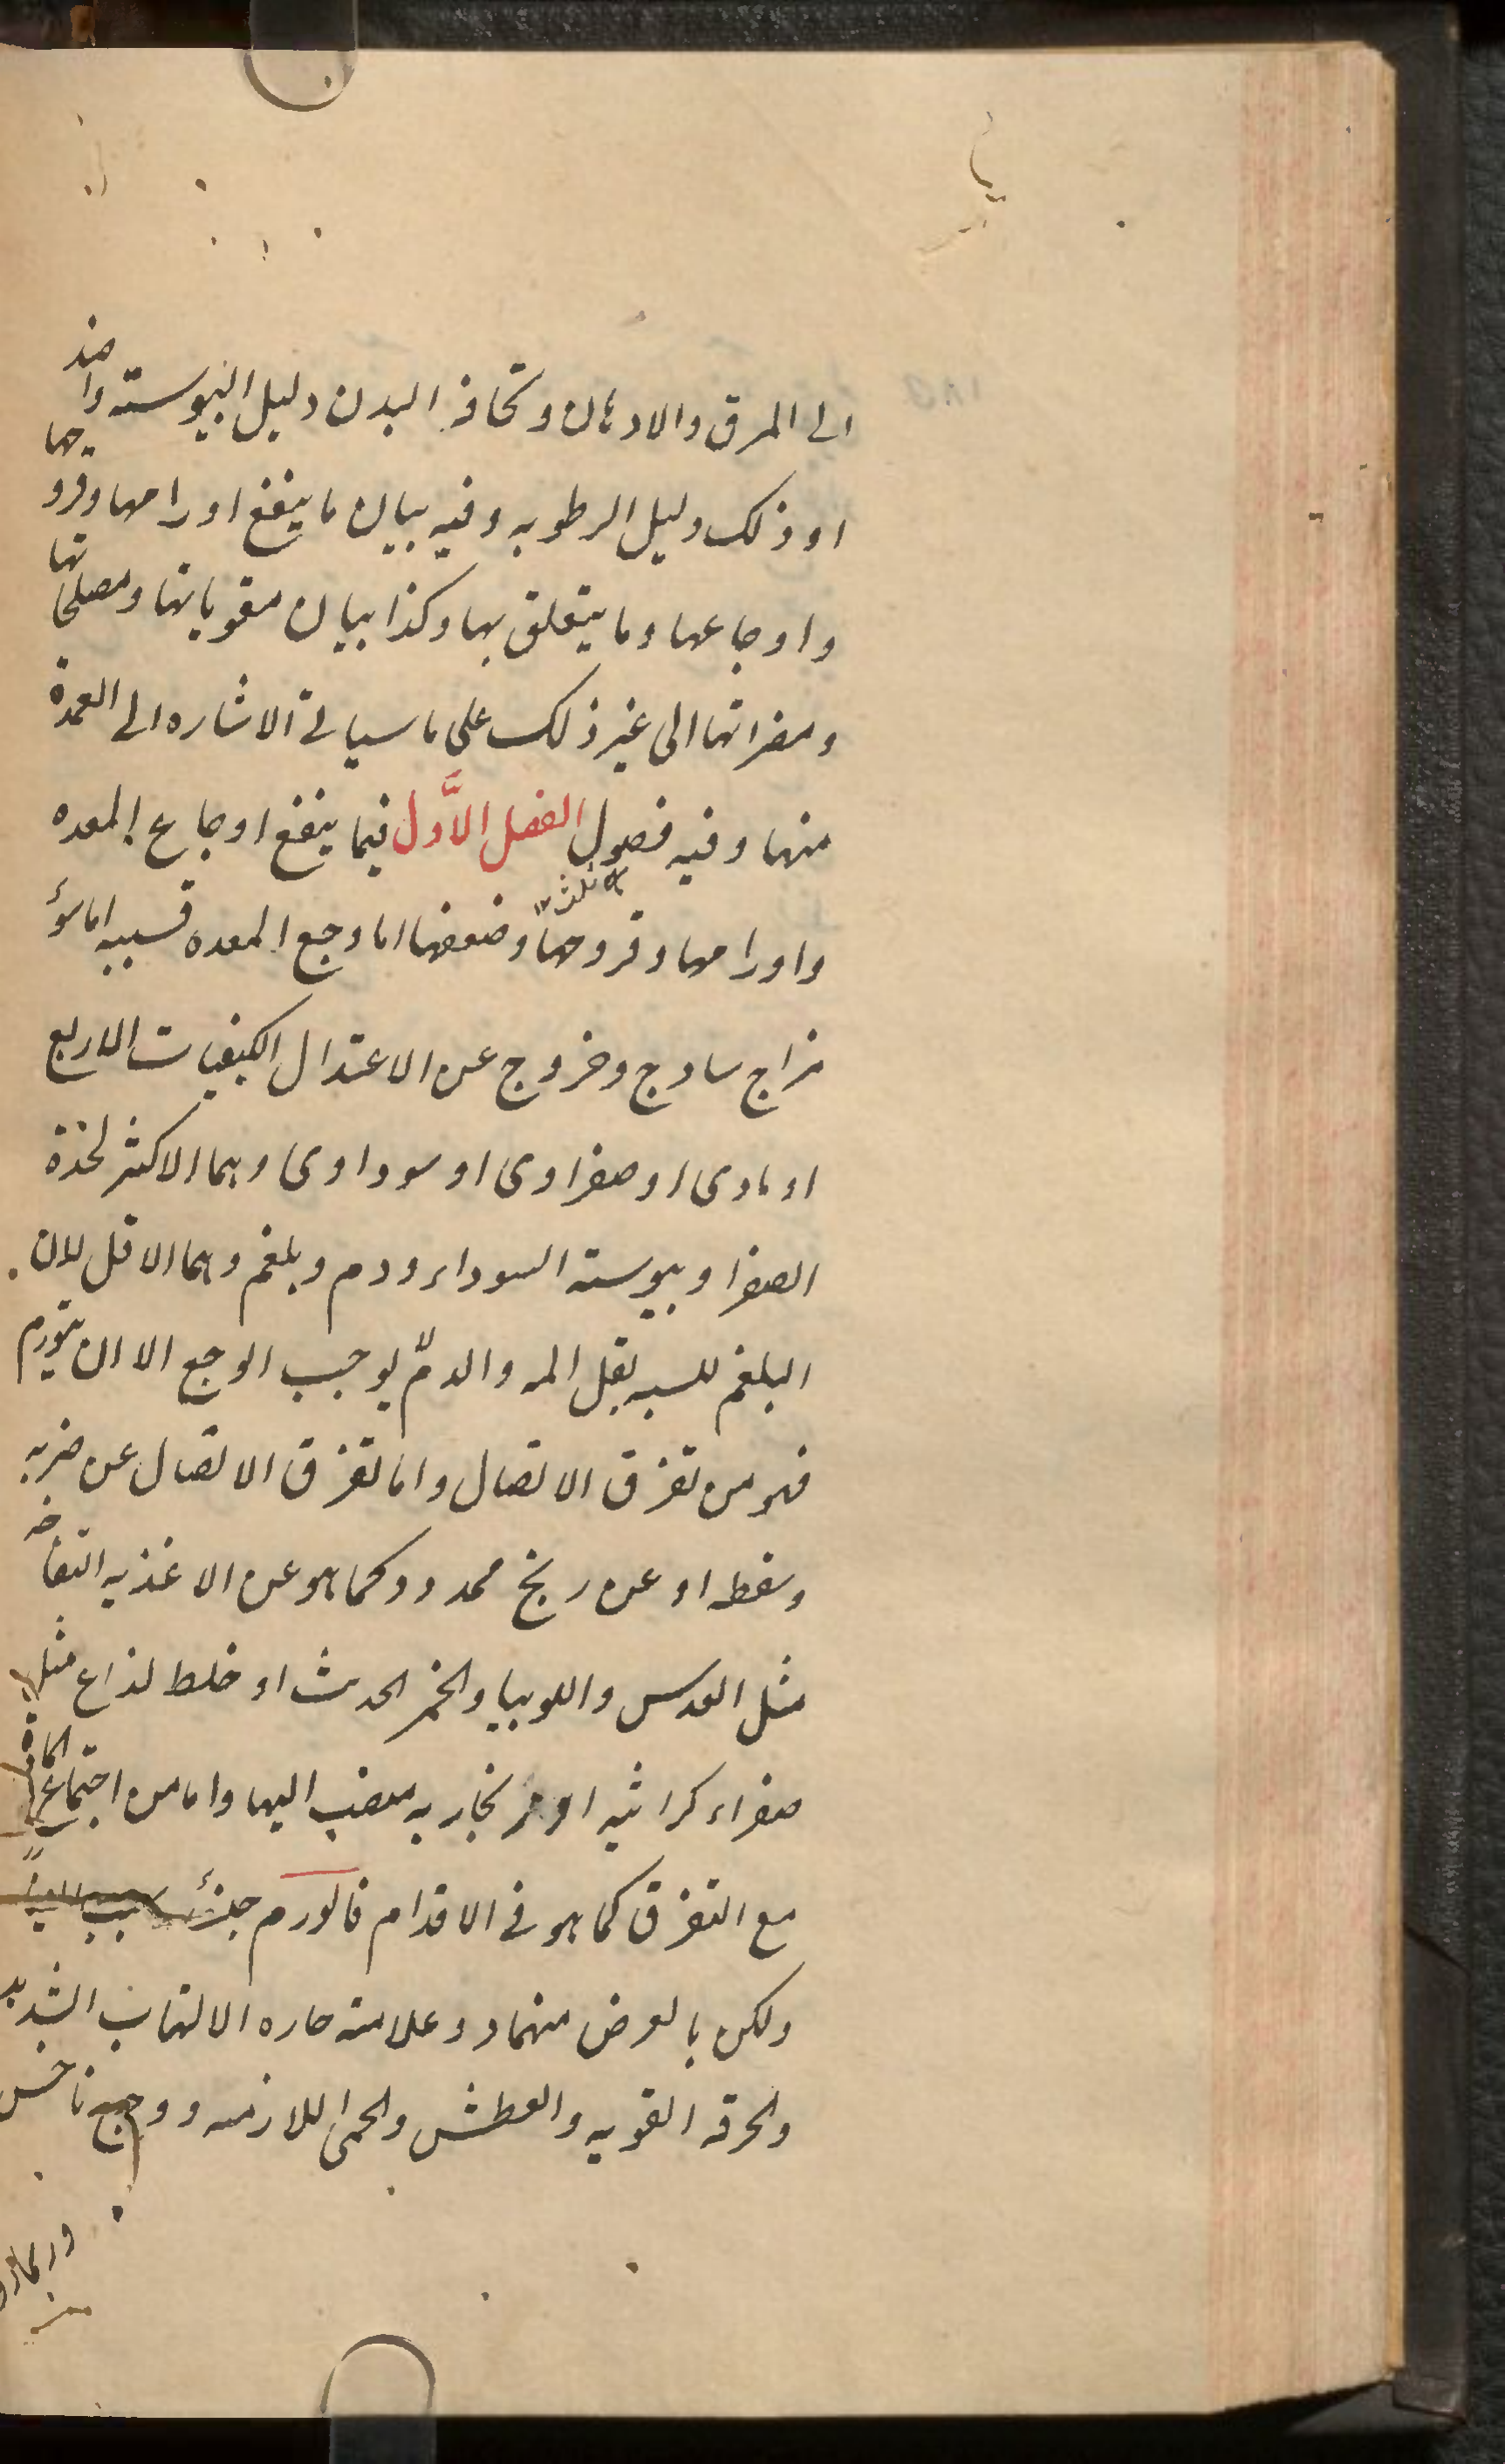 الى المرق والادهان ونحافة البدن دليل اليبوسته واضد
اد ذلك دليل الرطوبه وفيه بيان ما ينفع اورامها وقروحها
واوجاعها وما يتعلق بها وكذا بيان مقوياتها ومصلحاتها
ومضراتها الى غير ذلك على ما سياتى الاشاره الى العمدة
منها وفيه فصول ثلثه الفصل الاَّول فيما ينفع اوجاع المعده
واورامها وقروحها وضعفها اما وجع المعده فسببه اما سوء
مزاج سادج وخروج عن الاعتدال الكيفيات الاربع
او مادى او صفراوى او سوداوى وهما الاكثر لحذة
الصفرا ويبوسته السوداء ودم وبلغم وهما الاقل لان
البلغم للسبه يقل المه والدمّ لا يوجب الوجع الا ان يتورم
فهو من تفرق الاتصال واما تفرق الاتصال عن ضربه
وسقطه او عن ريح ممدد وكما هو عن الاغذيه النفاخه
مثل العدس واللوبيا والخمر الحدث او خلط لذاع مثل
صفراء كراثيه او زنجاريه منصب اليها واما من اجتماع المادة
مع التفرق كما هو فى الاقدام فالورم حينئذ
ولكن بالعرض منهما د وعلامته حاره الالتهاب الشديد
والحرقه القويه والعطش والحمى اللازمه ووجع ناخس